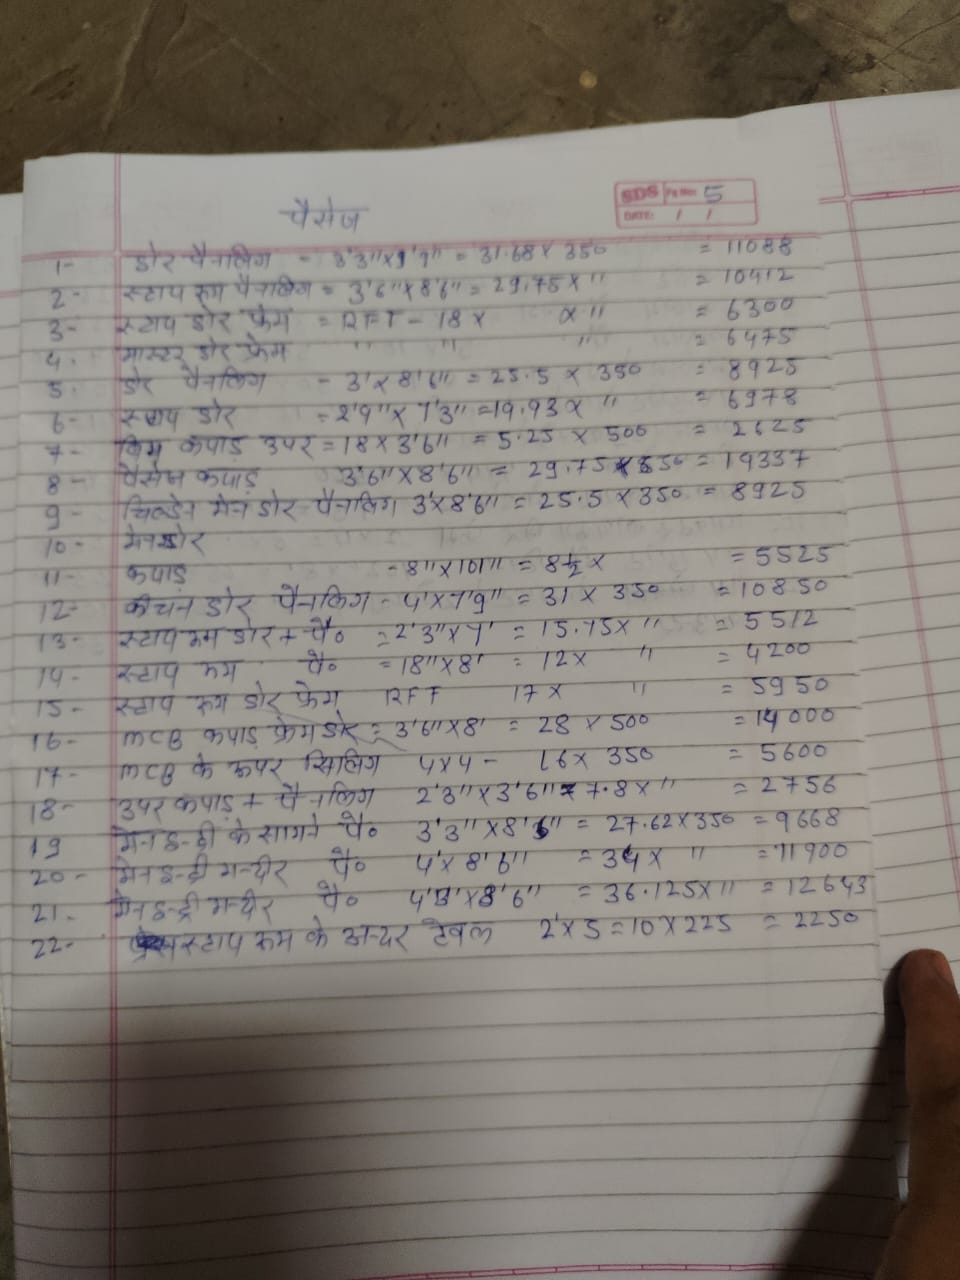 SDS Pg No: 5
DATE: / /
पैसेज
1- डोर पैनलिंग - 3'3"x9'9" = 31.68 x 350 = 11088
2- स्टाप रुम पैनलिंग = 3'6"x8'6" = 29.75 x " = 10412
3- स्टाप डोर फ्रेम = RFT - 18 x " = 6300
4. मास्टर डोर फ्रेम " " " = 6475
5. डोर पैनलिंग - 3'x8'6" = 25.5 x 350 = 8925
6- स्टाप डोर = 2'9"x7'3" = 19.93 x " = 6978
7- कपाड़ उपर = 18x3'6" = 5.25 x 500 = 2625
8- पैसेज कपाड़ 3'6"x8'6" = 29.75 x 650 = 19337
9- चिल्ड्रेन मेन डोर पैनलिंग 3'x8'6" = 25.5 x 350 = 8925
10- मेन डोर
11- कपाड़ - 8"x101" = 8½ x = 5525
12- कीचन डोर पैनलिंग - 4'x7'9" = 31 x 350 = 10850
13- स्टाप रुम डोर + पै० = 2'3"x7' = 15.75 x " = 5512
14- स्टाप रुम पै० = 18"x8' = 12 x " = 4200
15- स्टाप रुम डोर फ्रेम RFF 17 x " = 5950
16- MCB कपाड़ फ्रेम डोर = 3'6"x8' = 28 x 500 = 14000
17- MCB के ऊपर सिलिंग 4x4 - 16 x 350 = 5600
18- उपर कपाड़ + पैनलिंग 2'3"x3'6" = 7.8 x " = 2756
19 मेन इन्ट्री के सामने पै० 3'3"x8'6" = 27.62 x 350 = 9668
20- मेन इन्ट्री मन्दीर पै० 4'x8'6" = 34 x " = 11900
21- मेन इन्ट्री मन्दीर पै० 4'3"x8'6" = 36.125 x " = 12643
22- स्टाप रुम के अन्दर टेबल 2'x5 = 10 x 225 = 2250